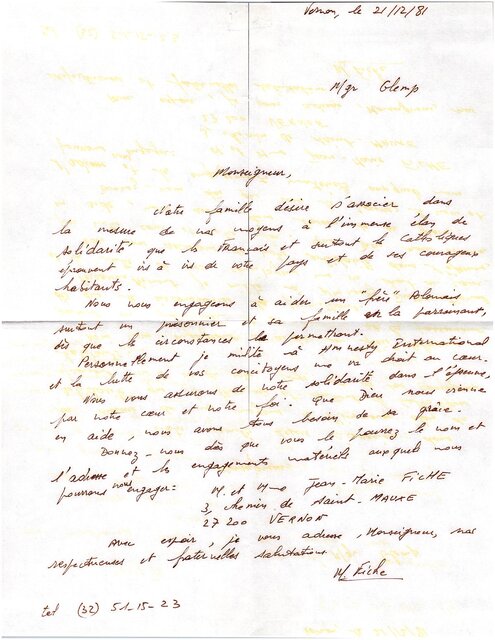 Vernon, le 21/12/81
Mgr Glemp
Monseigneur,
Notre famille désire s'associer dans
la mesure de nos moyens à l'immense élan de
solidarité que les Français et surtout les Catholiques
éprouvent vis à vis de votre pays et de ses courageux
habitants.
Nous nous engageons à aider un "frère" Polonais
surtout un prisonnier et sa famille en la parrainant,
dès que les circonstances le permettront.
Personnellement je milite à Amnesty International
et la lutte de vos concitoyens me va droit au cœur.
Nous vous assurons de notre solidarité dans l'épreuve,
par notre cœur et notre foi. Que Dieu nous vienne
en aide, nous avons tous besoin de sa grâce.
Donnez-nous dès que vous le pourrez le nom et
l'adresse et les engagements matériels auxquels nous
pourrons nous engager :
M. et Mme Jean-Marie FICHE
3, chemin de Saint-MAUXE
27200 VERNON
Avec espoir, je vous adresse, Monseigneur, nos
respectueuses et fraternelles salutations
M. Fiche
tel (32) 51-15-23